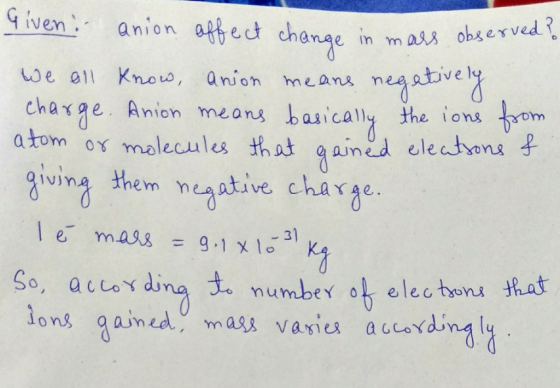 Given:- anion affect change in mass observed?
We all know, anion means negatively
charge. Anion means basically the ions from
atom or molecules that gained electrons &
giving them negative charge.
1 e⁻ mass = 9.1 x 10⁻³¹ kg
So, according to number of electrons that
ions gained, mass varies accordingly.